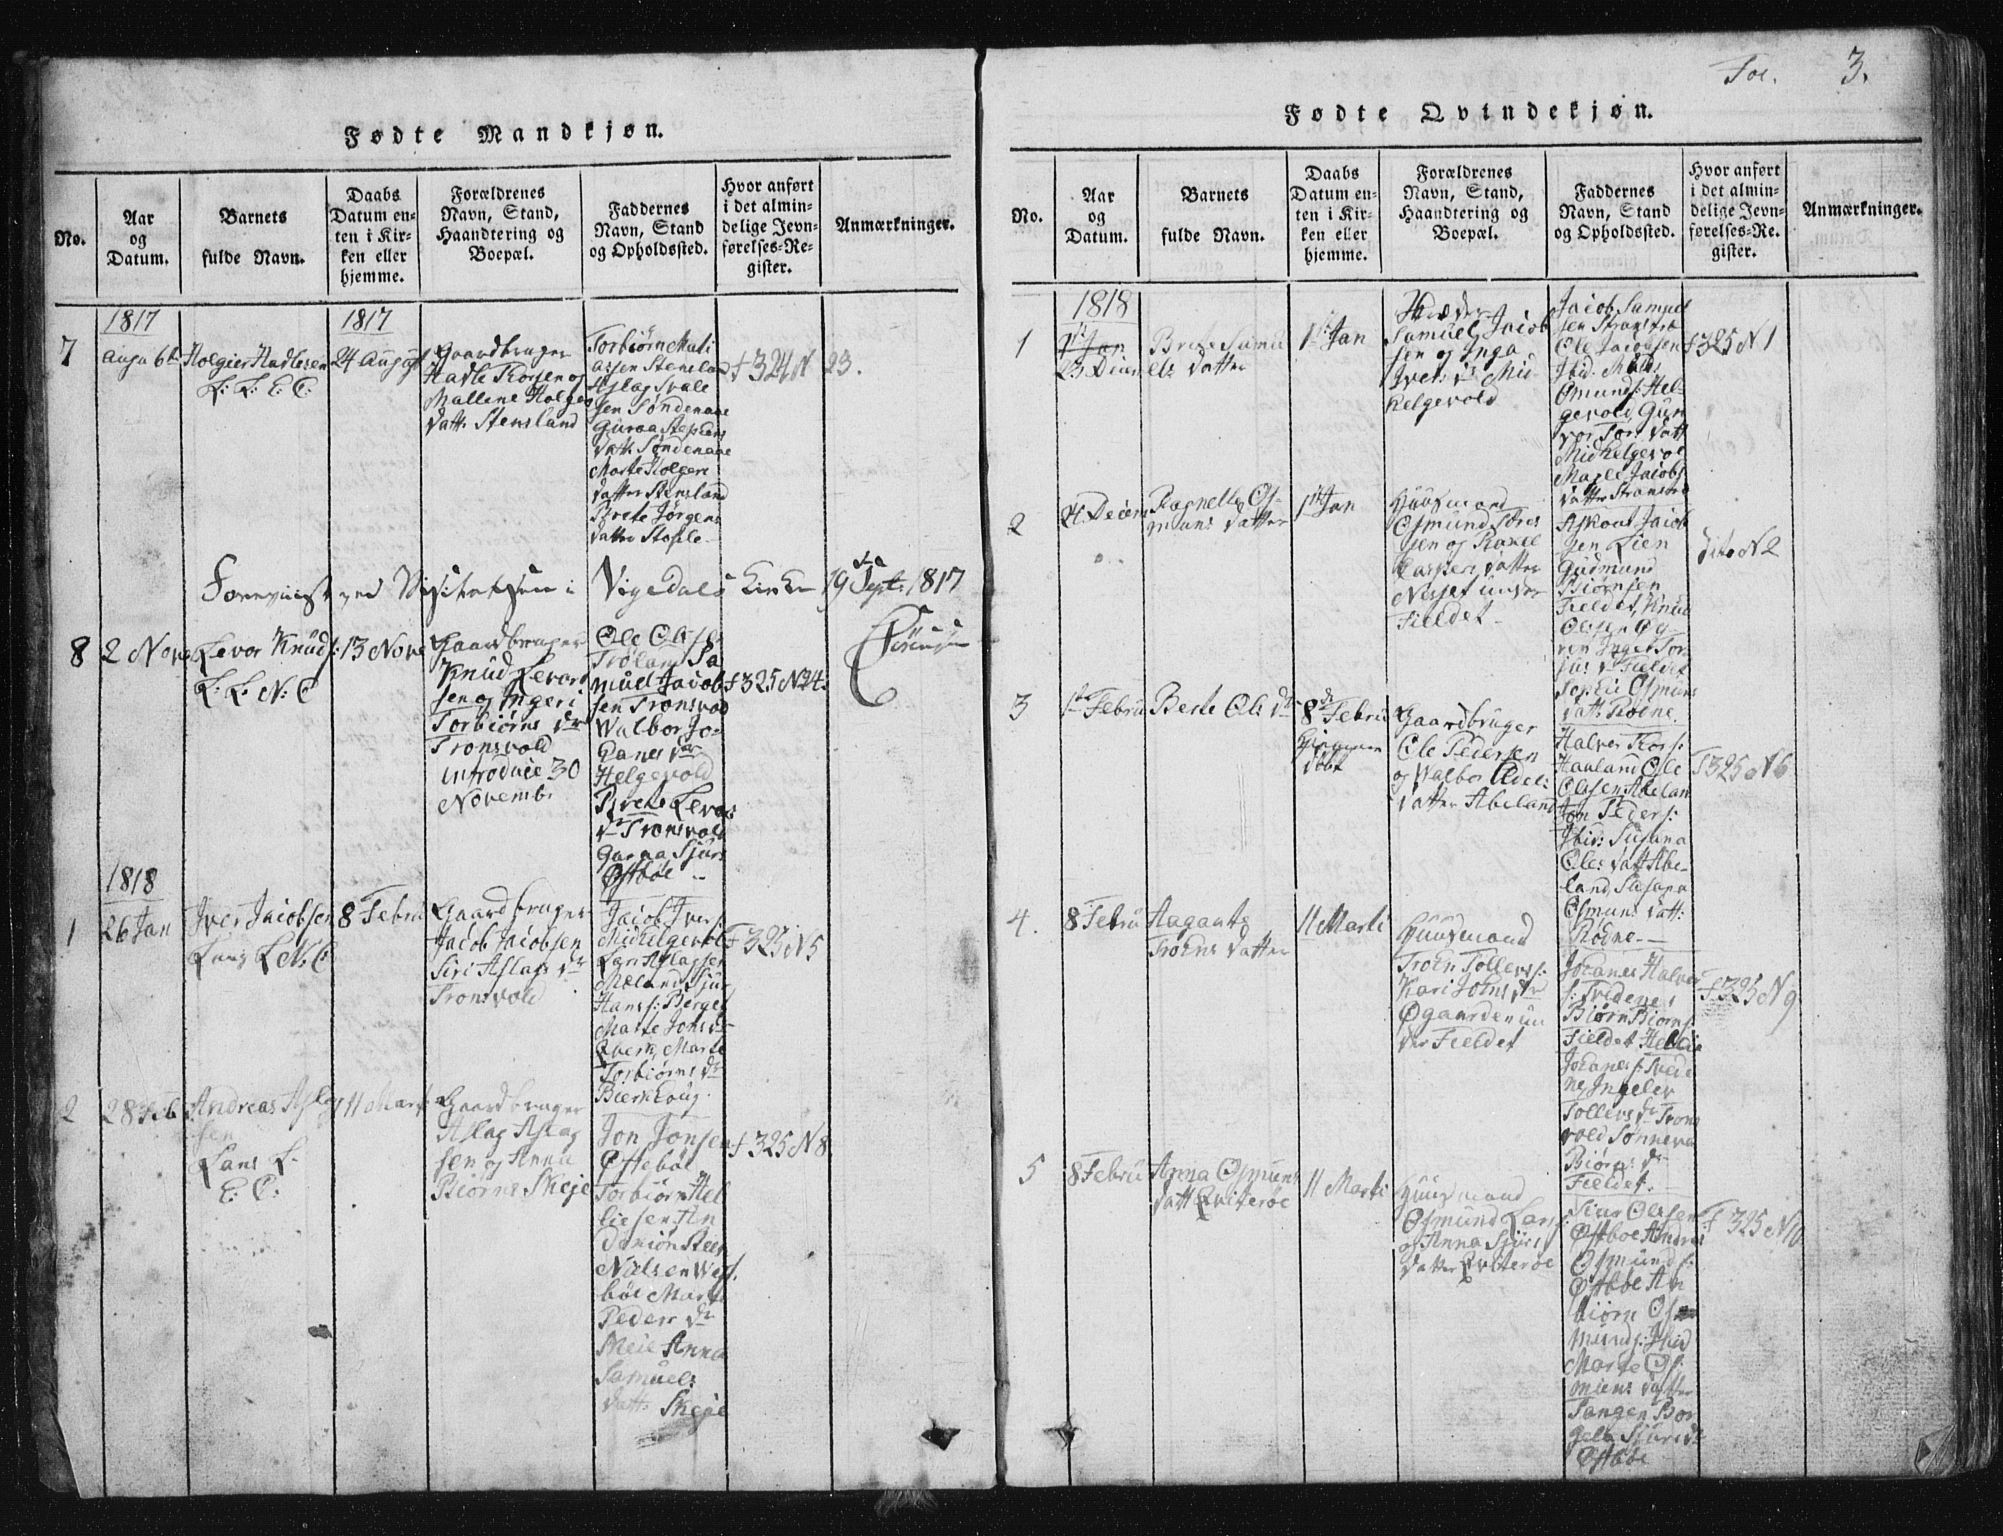 Fødte Mandkjøn.
No.
Aar
og
Datum.
Barnets
fulde Navn.
Daabs
Datum en-
ten i Kir-
ken eller
hjemme.
Forældrenes
Navn, Stand,
Haandtering og
Boepæl.
Faddernes
Navn, Stand
og Opholdssted.
Hvor anført
i det almin-
delige Jevn-
førelses-Re-
gister.
Anmærkninger.
1817
1817
7
Augu 6te
Holgier Hadlesen
L: L: E: C:
24 August
Gaardbruger
Hadle Thorsen og
Mallene Holges
datt: Stensland
Torbiørn Mati
assen Stensland
Aslag Svale
sen Søndenaae
Guroa Stephens
datt: Søndenaae
Marte Holgers
datter Stensland
Brete Jørgens
datter Stople
f 324 N 23.
Foreviist ved Visitatsen i Vigedals Kirke 19de Sept: 1817
Sørensen
8
2 Nove
Levor Knuds:
L: L: N: C
13 Nove
Gaardbruger
Knud Levord
sen og Ingeri
Torbiørns dr
Tronsvold
introduce 30
Novembr
Ole Olsen
Trøland Sa
muel Jacob
sen Tronsvold
Walbor Jo-
hanes dtr
Helgevold
Brete Levor
dr Tronsvold
Guroa Sjurs
Østbøe
f 325 N 24.
1818
1
26 Jan
Iver Jacobsen
L. N. C
8 Febru
Gaardbruger
Jacob Jacobsen
Siri Aslags dr
Tronsvold
Jacob Ivers:
Mickelgevold
Lars Aslagsen
Meland Sjur
Hans: Berge
Marte Jons dr
Qvern, Marte
Torbiørns dr
Bierkhoug.
F 325 N 5
2
28 Feb
Andreas Aslag
sen
L.
E: C:
11 Marti
Gaardbruger
Aslag Aslag
sen og Anna
Biørns Skeje
Jon Jonsen
Østebøe
Torbiørn Hel
liesen
Nielsen West
bøe Marte
Peders dr
Skeie Anna
Samuels
datt: Skeje
f 325 N 8.
Fol. 3.
Fødte Qvindekjøn.
No.
Aar
og
Datum.
Barnets
fulde Navn.
Daabs
Datum en-
ten i Kir-
ken eller
hjemme.
Forældrenes
Navn, Stand,
Haandtering og
Boepæl.
Faddernes
Navn, Stand
og Opholdssted.
Hvor anført
i det almin-
delige Jevn-
førelses-Re-
gister.
Anmærkninger.
1818
1
1st Jan
23 Decem
Brete Samu
els datter
1st Jan
Samuel Jacob
sen og Inga
Ivers dr Mi
kelgevold
Jacob Samuel
sen
Ole Jacobsen
Ibid: Mats
Osmunds: Hel-
gevold Gun
vor Tors datt
Mickelgevol
Maele Jacobs
datter
f 325 N 1
2
24 Decem
Ragnelle Os-
muns datter
1st Jan
Huusmand
Osmund Tores
sen og Rakel
Caspers datter
Nesset under
Fieldet
Askout Jacob
sen Lien
Gudmund
Biørnsen
Fieldet, Knud
Olssen Øg-
ren Inger Tor
jus d. Fieldet
Sophie Osmuns
datt: Rødne.
dito N 2
3
1ste Febru
Berte Ols dr
8de Febru
hiemme
døbt
Gaardbruger
Ole Pedersen
og Walbor
datter Abeland
Halvor Tors:
Hauland Osle
Olssen Abeland
Jon Peders:
Ibid: Susana
Oles datt Abe-
land Susana
Osmuns datt:
Rødne.
F 325 N 6
4.
8 Febru
Aagaate
Troens datter
11 Marti
Huusmand
Troen Tollevs:
Kari Johns dr
Øgaarden un
der Fieldet
Johanes Halvor
s: Tvedene,
Biørn Biørns:
Fieldet Hellie
Johanes: Tvede
ne, Ingelev
Tollevs dr Trons
vold Sønneva
Biørns dr
Fieldet.
F 325 N 9
5
8 Febru
Anna Osmuns
datt Qviterøe
11 Marti
Huusmand
Osmund Lars:
og Anna Sjurs
datter Qviterøe
Siur Olssen
Østbøe Andres
Osmunds:
Østbøe An
biørn Os
munds: Ibid
Marte Os
muns datter
Tangen Bor
gela Sjurs dr
Østbøe
F 325 N 10